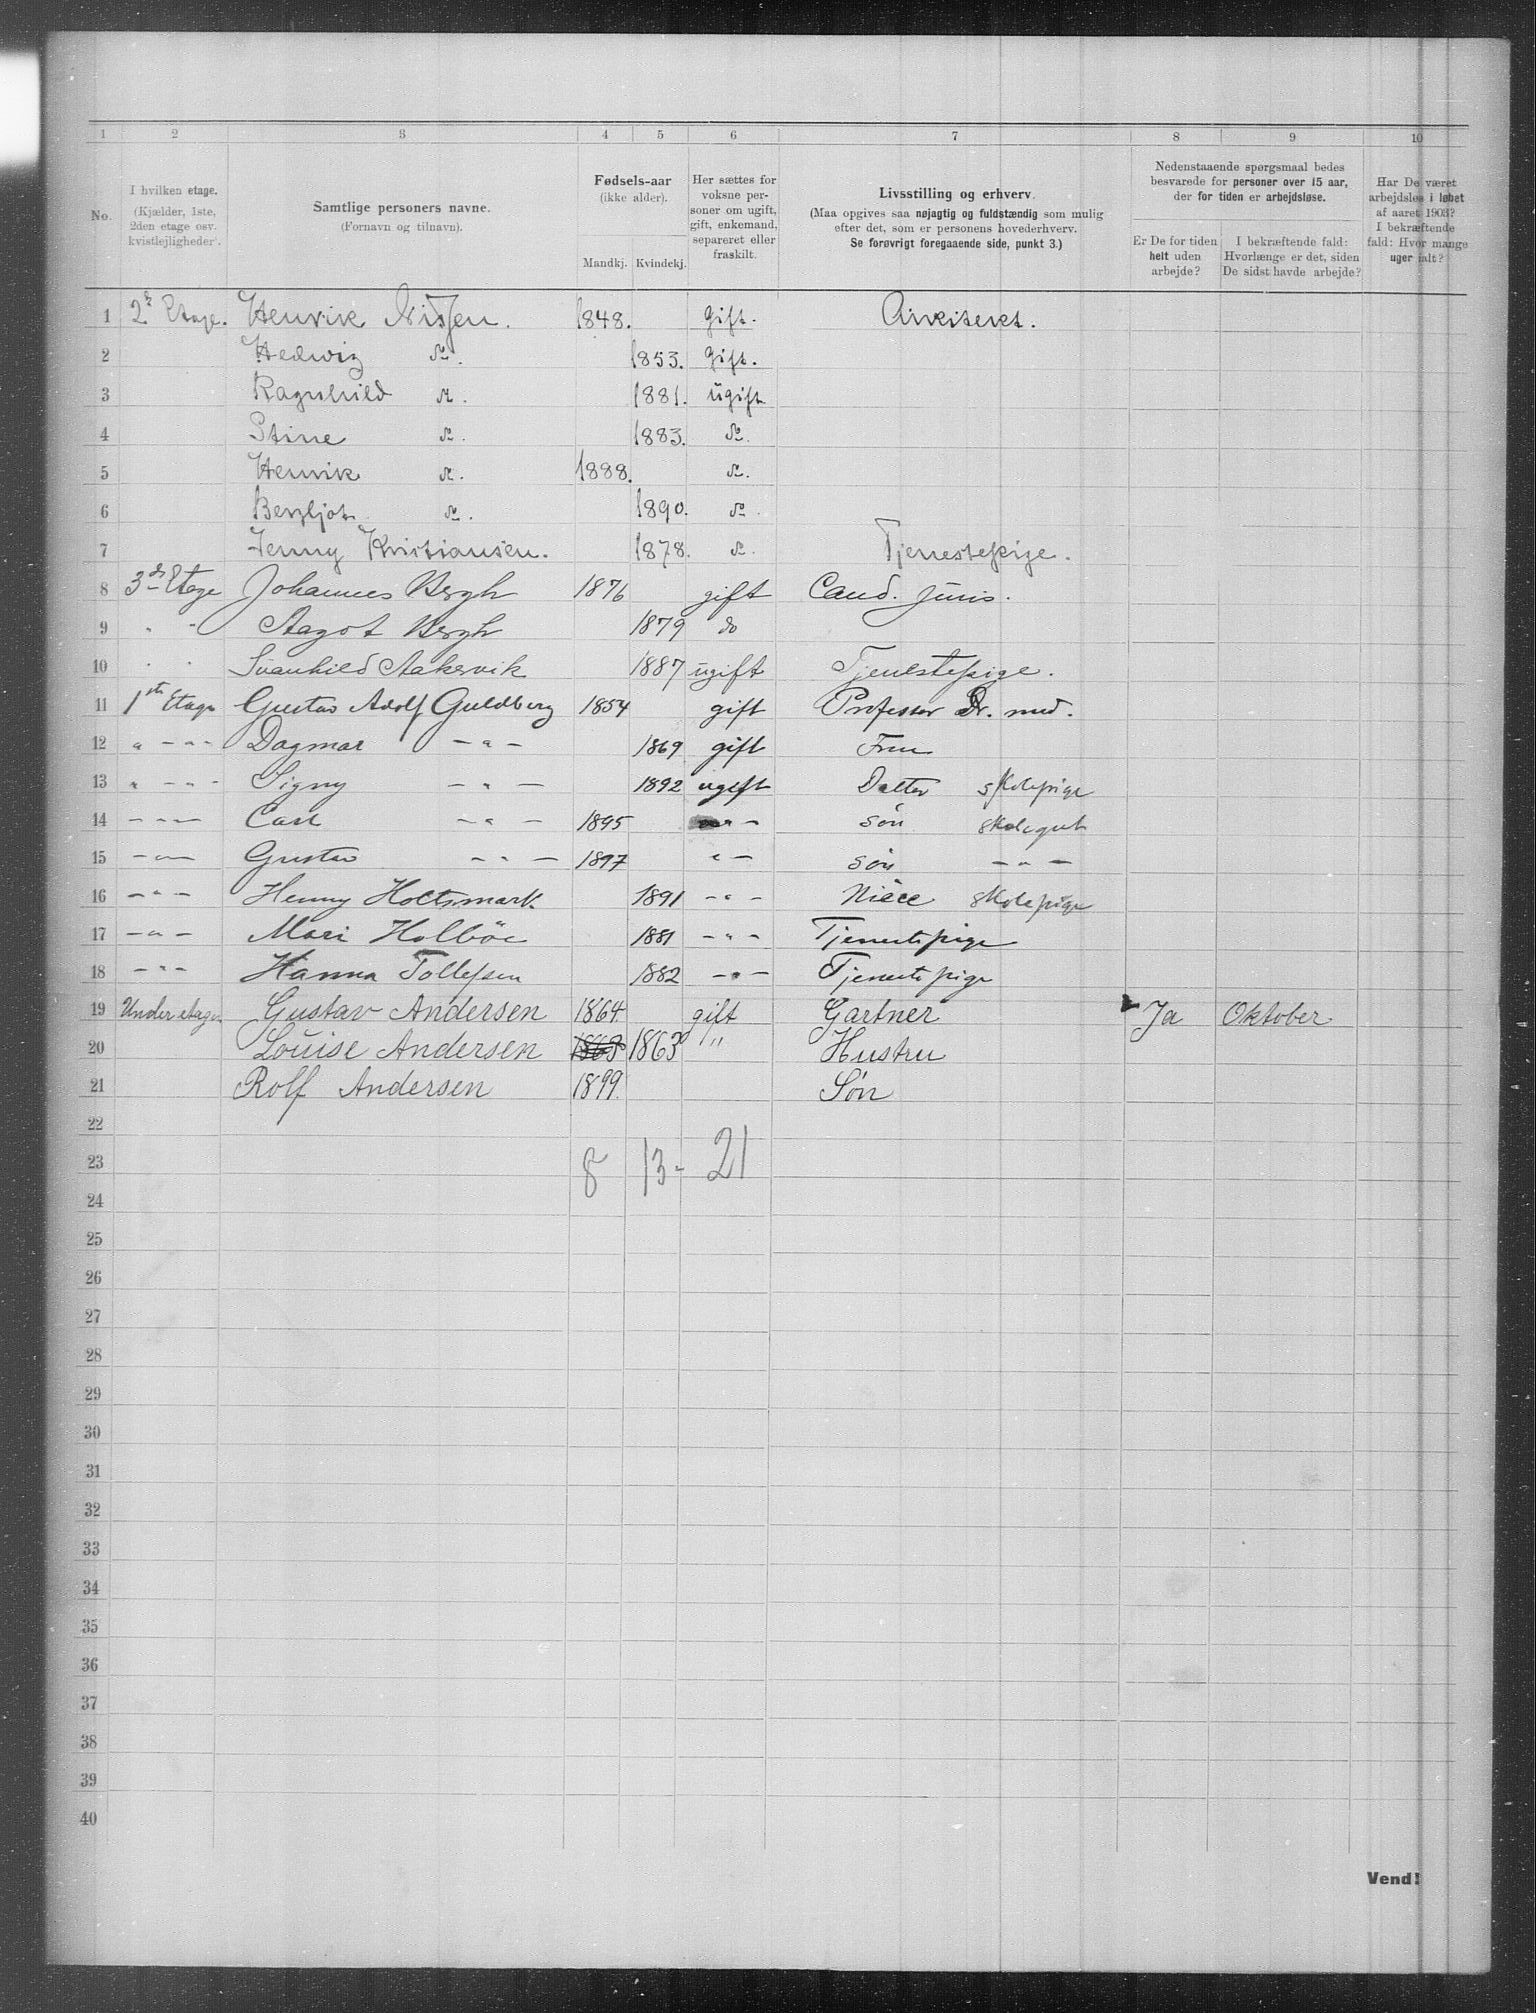 1 2 3 4 5 6 7 8 9 10
No.
I hvilken etage.
(Kjælder, 1ste,
2den etage osv.
kvistlejligheder).
Samtlige personers navne.
(Fornavn og tilnavn).
Fødsels-aar
(ikke alder).
Mandkj. Kvindekj.
Her sættes for
voksne per-
soner om ugift,
gift, enkemand,
separeret eller
fraskilt.
Livsstilling og erhverv.
(Maa opgives saa nøjagtig og fuldstændig som mulig
efter det, som er personens hovederhverv.
Se forøvrigt foregaaende side, punkt 3.)
Nedenstaaende spørgsmaal bedes
besvarede for personer over 15 aar,
der for tiden er arbejdsløse.
Er De for tiden
helt uden
arbejde?
I bekræftende fald:
Hvorlænge er det, siden
De sidst havde arbejde?
Har De været
arbejdsløs i løbet
af aaret 1903?
I bekræftende
fald: Hvor mange
uger ialt?
1 2d Etage. Henrik Nissen. 1848. Gift. Arkitekt.
2 Hedwig do. 1853. Gift.
3 Ragnhild do. 1881. ugift
4 Stine do. 1883. do.
5 Henrik do. 1888. do.
6 Bergljot do. 1890. do.
7 Jenny Kristiansen. 1878. do. Tjenestepige.
8 3de Etage Johannes Bergh 1876 gift Cand. juris.
9 " " Aagot Bergh 1879 do
10 " " Svanhild Aakervik 1887 ugift Tjenestepige.
11 1ste Etage Gustav Adolf Guldberg 1854 gift Professor Dr. med.
12 " — " — " Dagmar — " — 1869 gift Fru
13 " — " — " Signy — " — 1892 ugift Datter skolepige
14 — " — Carl — " — 1895 — " — søn skolegut
15 — " — Gustav — " — 1897 " — søn — " —
16 — " — Henny Holtsmark 1891 — " — Niece skolepige
17 — " — Mari Holbøe 1881 — " — Tjenestepige
18 — " — Hanna Tollefsen 1882 — " — Tjenestepige
19 Under etage Gustav Andersen 1864. gift Gartner Ja Oktober
20 Louise Andersen 1863 1863 " Hustru
21 Rolf Andersen 1899. Søn
22
23 8 13 - 21
24
25
26
27
28
29
30
31
32
33
34
35
36
37
38
39
40
Vend!